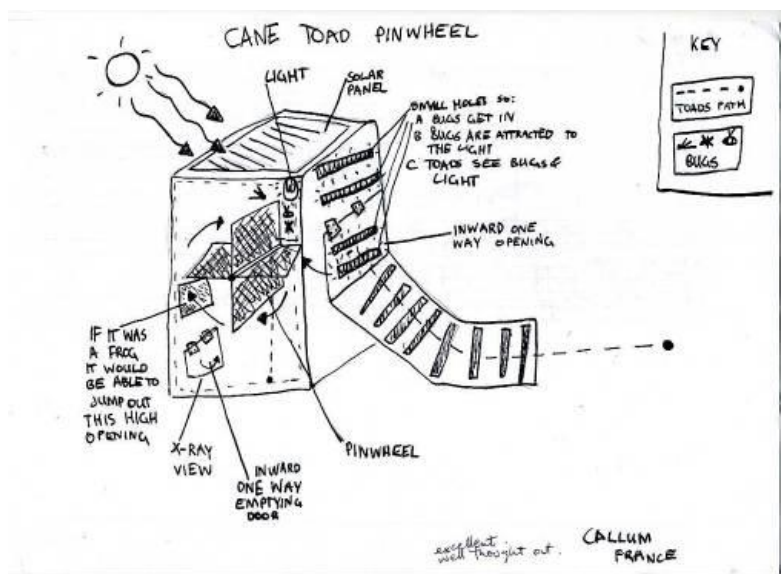 CANE TOAD PINWHEEL
LIGHT
SOLAR
PANEL
SMALL HOLES SO:
A BUGS GET IN
B BUGS ARE ATTRACTED TO
THE LIGHT
C TOADS SEE BUGS &
LIGHT
KEY
TOADS PATH
BUGS
INWARD ONE
WAY OPENING
IF IT WAS
A FROG
IT WOULD
BE ABLE TO
JUMP OUT
THIS HIGH
OPENING
X-RAY
VIEW
INWARD
ONE WAY
EMPTYING
DOOR
PINWHEEL
excellent.
well thought out.
CALLUM
FRANCE